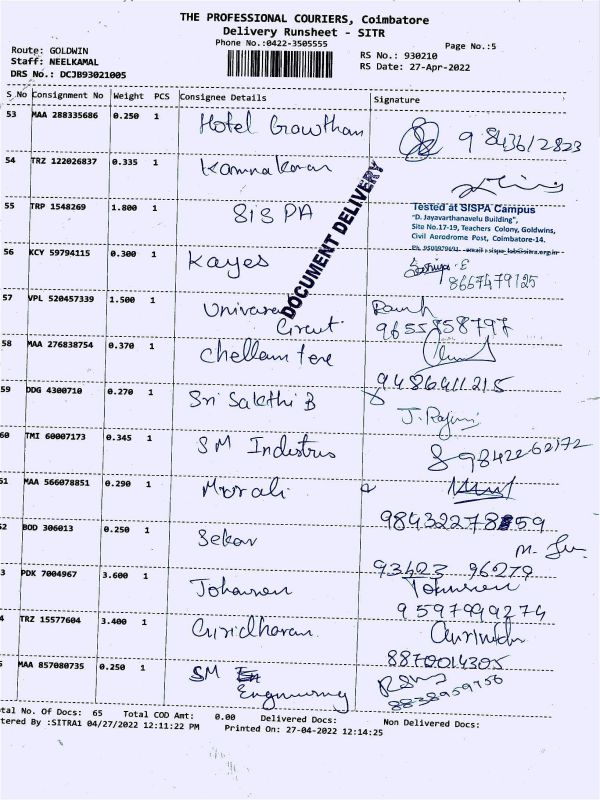 THE PROFESSIONAL COURIERS, Coimbatore
Delivery Runsheet - SITR
Phone No.:0422-3505555
Page No.:5
Route: GOLDWIN
Staff: NEELKAMAL
DRS No.: DCJB93021005
RS No.: 930210
RS Date: 27-Apr-2022
S No Consignment No Weight PCS Consignee Details Signature
53 MAA 288335686 0.250 1 Hotel Gowtham
54 TRZ 122026837 0.335 1
55 TRP 1548269 1.800 1 SISPA
Tested at SISPA Campus
"D. Jayavarthanavelu Building",
Site No.17-19, Teachers Colony, Goldwins,
Civil Aerodrome Post, Coimbatore-14.
DOCUMENT DELIVERY
56 KCY 59794115 0.300 1 Kayes
8667479125
57 VPL 520457339 1.500 1
Circut
58 MAA 276838754 0.370 1
9486411215
59 DDG 4300710 0.270 1 Sri Sakthi B J. Rajini
60 TMI 60007173 0.345 1 SM Industrus 9842262172
61 MAA 566078851 0.290 1 Murali
62 BOD 306013 0.250 1 Sekar
93423 96279
3 PDK 7004967 3.600 1
9597999274
4 TRZ 15577604 3.400 1 Giridharan
8870014305
5 MAA 857080735 0.250 1 SM
Engineering
8838959756
tal No. Of Docs: 65 Total COD Amt: 0.00 Delivered Docs: Non Delivered Docs:
tered By :SITRA1 04/27/2022 12:11:22 PM Printed On: 27-04-2022 12:14:25